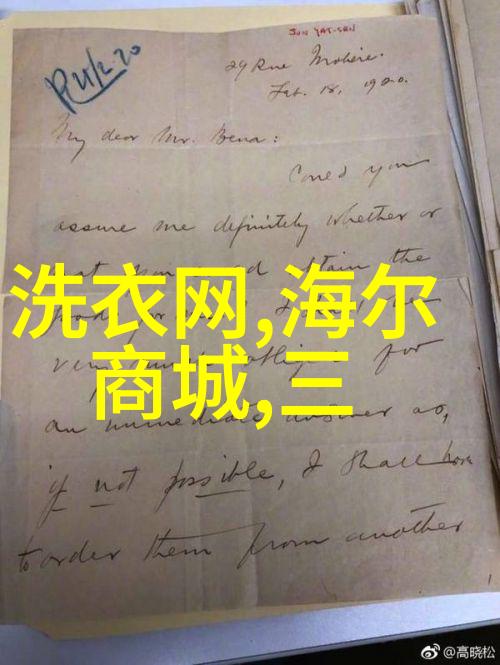 SUN YAT-SEN
29 Rue Molière.
Feb. 18, 1920.
My dear Mr. Bena:
Could you
assure me definitely whether or
the
洗衣网,海尔
for
商城,三
an immediate answer as,
if not possible, I shall have
to order them from another
@高晓松